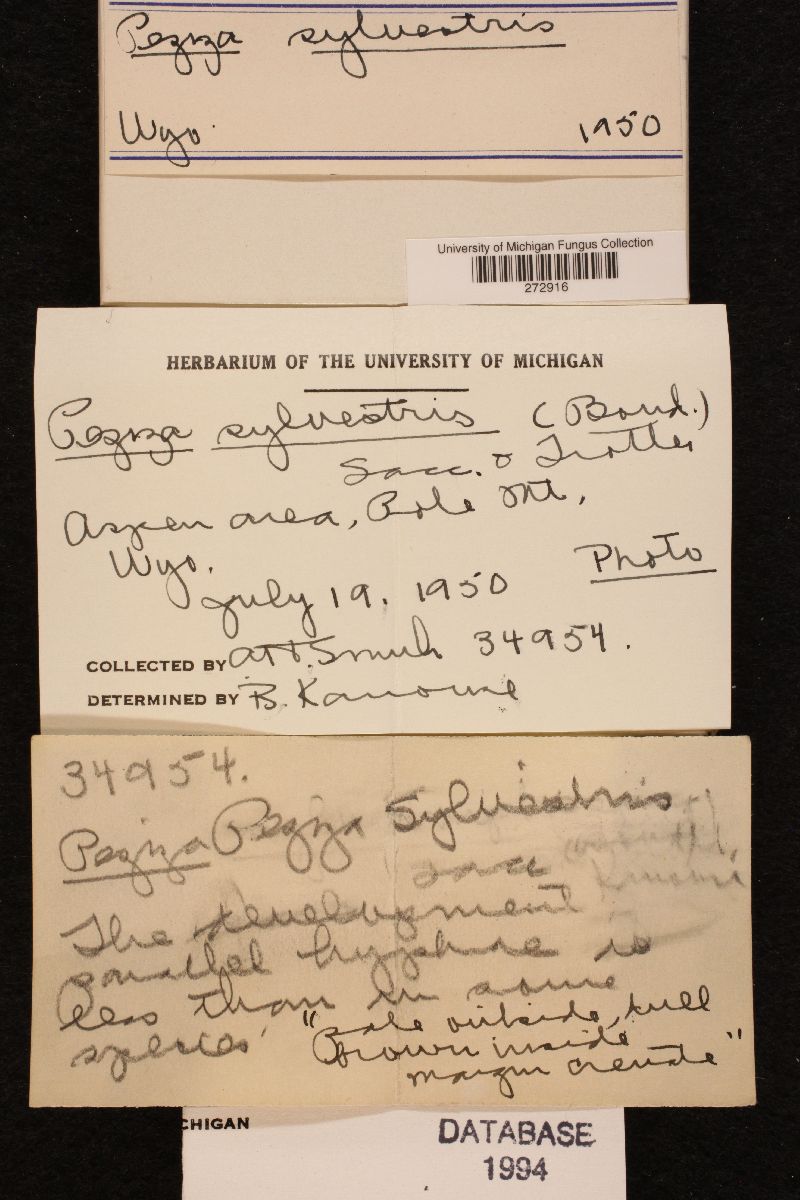 Peziza sylvestris
Wyo. 1950
University of Michigan Fungus Collection
272916
HERBARIUM OF THE UNIVERSITY OF MICHIGAN
Peziza sylvestris (Boud.)
Sacc. & Trotter
Aspen area, Pole Mt.,
Wyo. Photo
July 19, 1950
COLLECTED BY A.H. Smith 34954.
DETERMINED BY B. Kanouse
34954.
Peziza Peziza Sylvestris
Sacc
The development
parallel hyphae is
less than in some
species
"Pale outside, dull
brown inside
margin crenate"
CHIGAN
DATABASE
1994